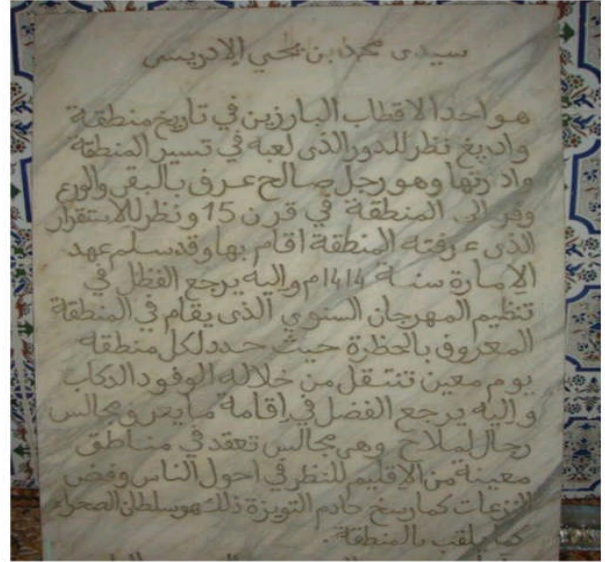 سيدى محمد بن يحي الادريسى
هو احد الاقطاب البارزين في تاريخ منطقة
وادريغ نظر للدور الذى لعبه في تسير المنطقة
واد رتها وهو رجل صالح عرف بالبقى والورع
وفد الى المنطقة في قرن 15 و نظر للاستقرار
الذى عرفته المنطقة اقام بها وقد سلم عهد
الامارة سنة 1414م واليه يرجع الفظل في
تنظيم المهرجان السنوي الذى يقام في المنطقة
المعروف بالحظرة حيث حدد لكل منطقة
يوم معين تنتقل من خلاله الوفود الركاب
و اليه يرجع الفضل في إقامة ما يعرو مجالس
رجال لملاح وهي مجالس تعقد في مناطق
معينة من الإقليم للنظر في احول الناس وفض
النزعات كما رسخ التويزة ذلك هو سلطان الصحراء
كما يلقب بالمنطقة.